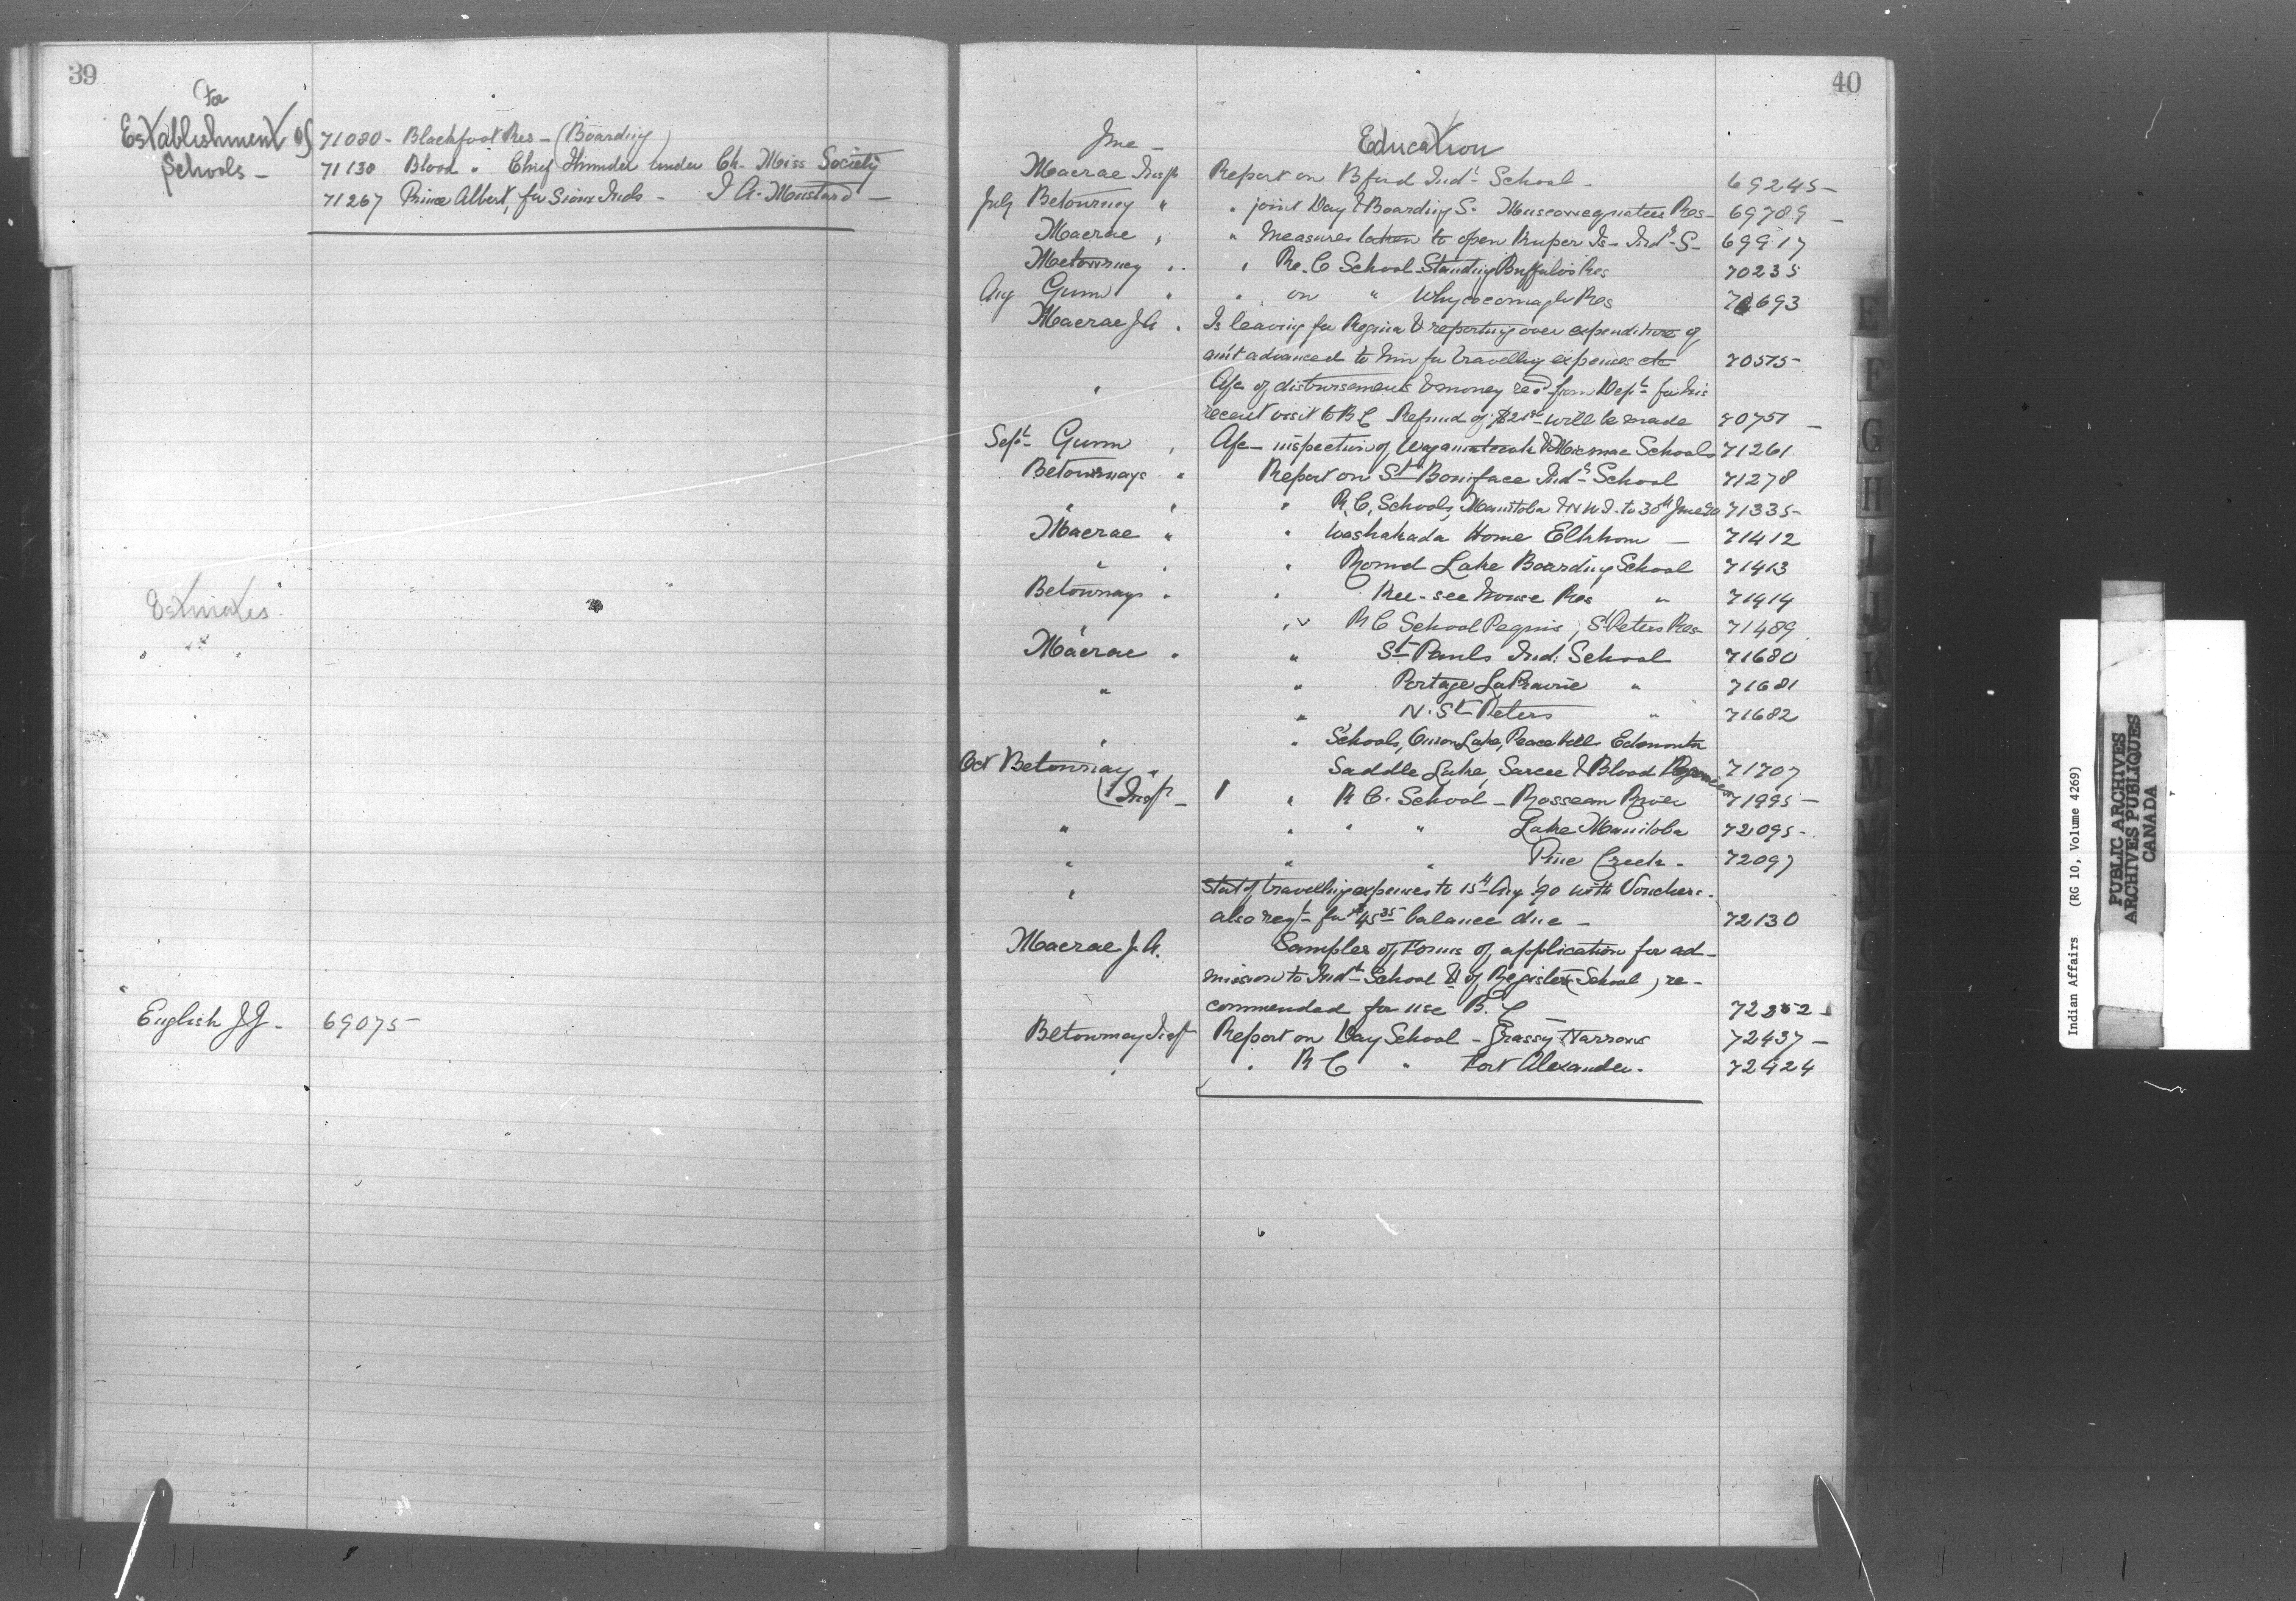 39
For
Establishment of
Schools -
71080 - Blackfoot Res - (Boarding)
71130 Blood " Chief Thunder under Ch. Miss Society
71267 Prince Albert, for Sioux Inds - J A. Mustard -
Estimates
English J J - 69075
40
June - Education
Macrae Insp Report on Bford Indl School - 69245 -
July Betourney " " joint Day & Boarding S. Muscowequatees Res - 69789 -
Macrae " " Measures taken to open Kuper Is - Indl S - 69917
Metourney " " Re. C School Standing Buffalo's Res 70235
Aug Gunn " " on " Whycocomagh Res 70693
Macrae J A " Is leaving for Regina & reporting over expenditure of
am't advanced to him for travelling expenses etc 70575 -
" A/c of disbursements & money recd from Dept for his
recent visit to B C Refund of $21 will be made 70751 -
Sept Gunn " A/c - inspection of & Micmac Schools 71261
Betournays " Report on St Boniface Indl School 71278
" " " R, C, Schools, Manitoba & N W T - to 30th June 90 71335 -
Macrae " " Washakada Home Elkhorn - 71412
" " " Round Lake Boarding School 71413
Betournays " " Kee-see kouse Res " 71414
" " R C School Peguis, St Peters Res - 71489
Macrae " " St Pauls Ind: School 71680
" " Portage La Prairie " 71681
" N. St Peters " 71682
" " Schools, Onion Lake, Peace Hills Edmonton
Oct Betournay " Saddle Lake, Sarcee & Blood 71707
(Insp - " R C. School - Rosseau River 71995 -
" " " " Lake Manitoba 72095 -
" " " Pine Creek - 72097
" Stat of travelling expenses to 15th Aug '90 with Vouchers.
also reqt for $45 35 balance due - 72130
Macrae J. A. Samples of Forms of application for ad-
mission to Indl School & of Register (School) re-
commended for use B. C 72252
Betournay Insp Report on Day School - Grassy Narrows 72437 -
" " R C " Fort Alexander. 72424
E
F
G
H
I
J
K
L
M
Indian Affairs (RG 10, Volume 4269)
PUBLIC ARCHIVES
ARCHIVES PUBLIQUES
CANADA